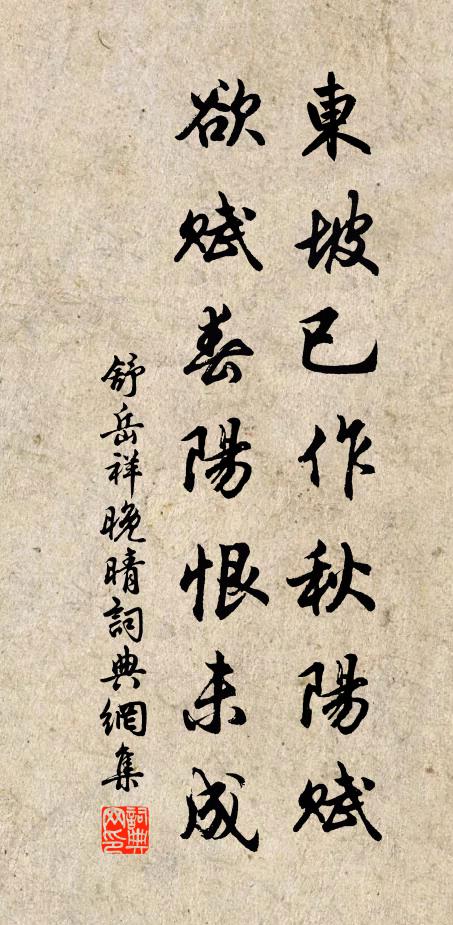 東坡已作秋陽賦
欲賦春陽恨未成
舒岳祥晚晴詞典網集
詞典網印